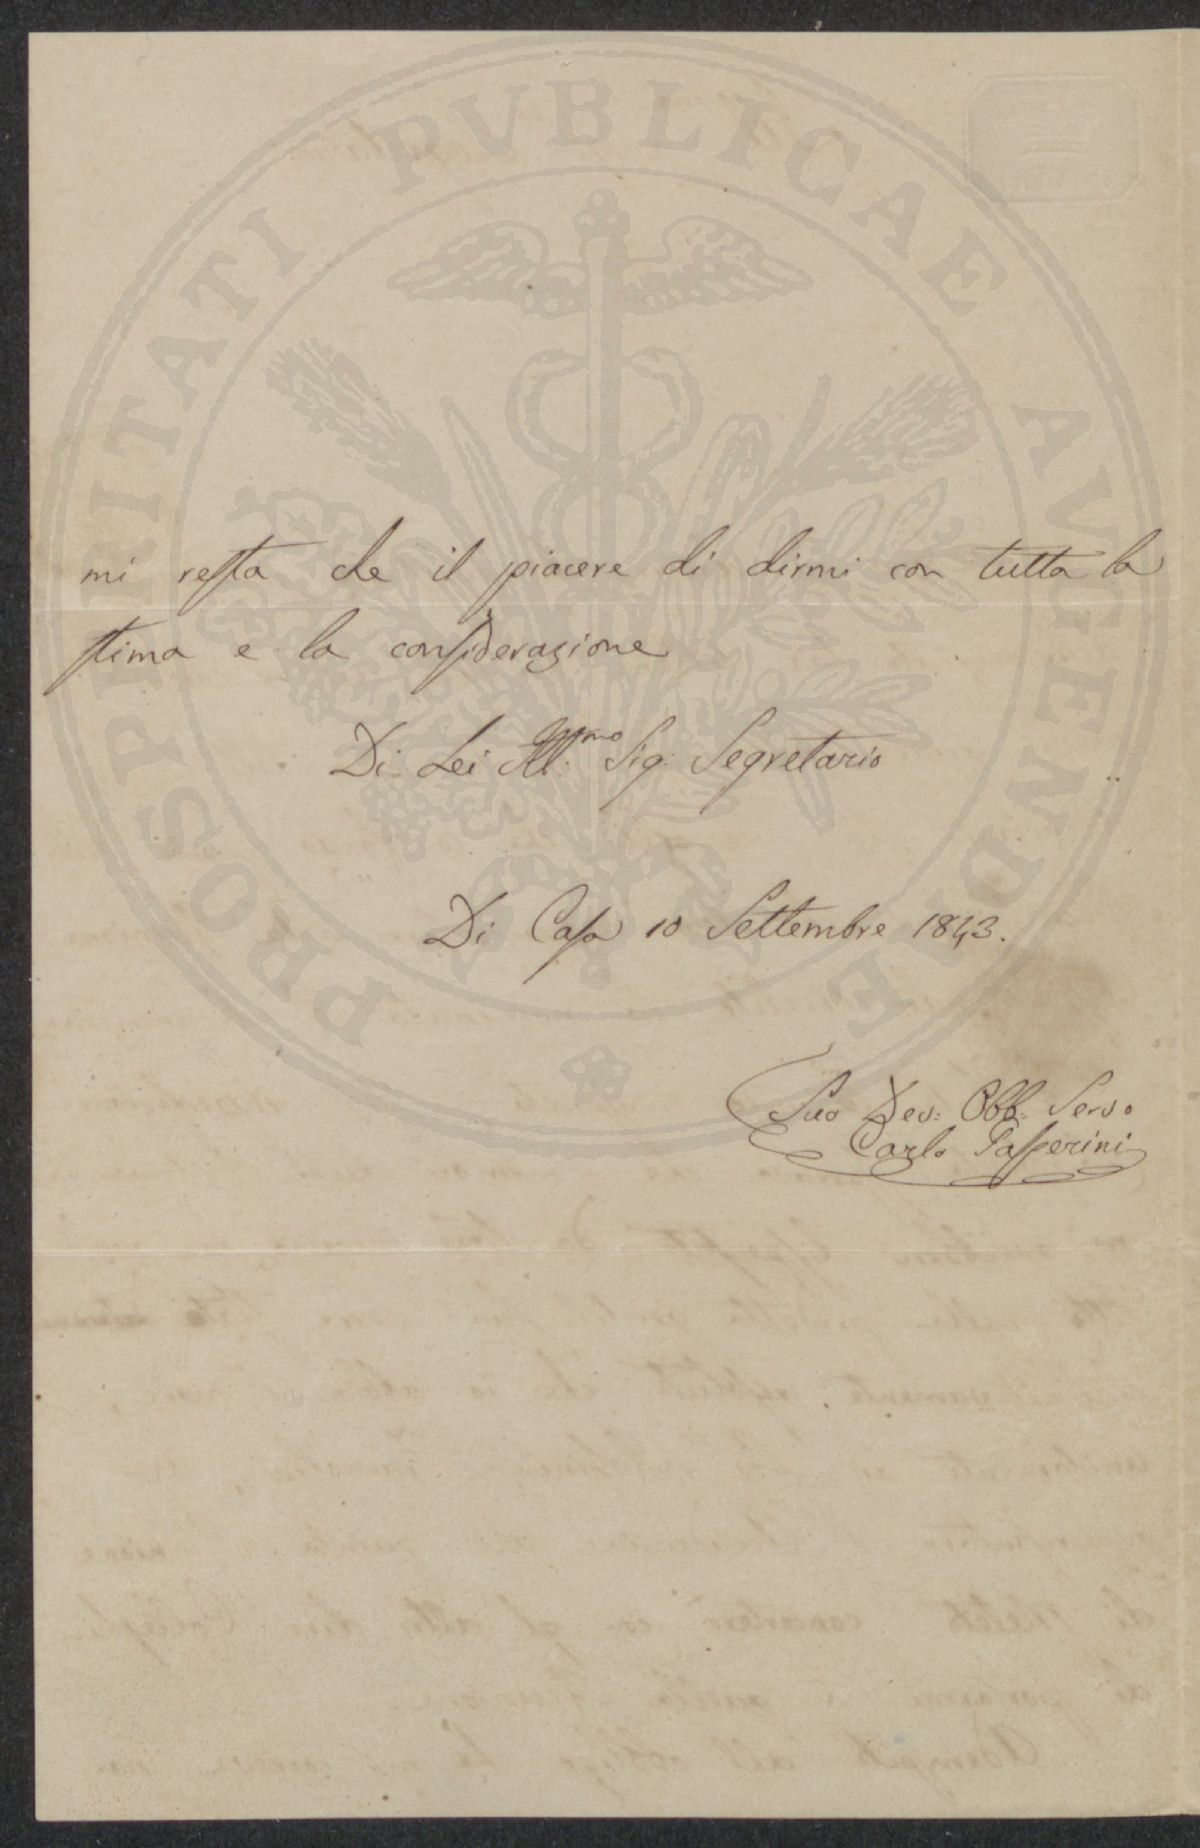 PROSPERITATI PVBLICAE AVGENDAE
mi resta che il piacere di dirmi con tutta la
stima e la considerazione
Di Lei Ill.mo Sig: Segretario
Di Casa 10 Settembre 1843.
Suo Dev: Obb: Servo
Carlo Gasperini